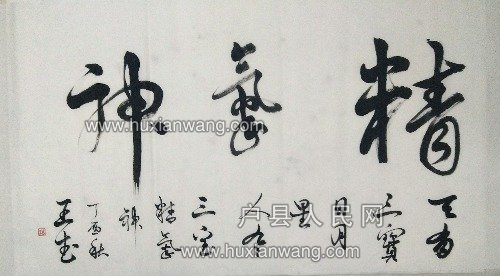 精氣神
天有
三寶
日月
星
人有
三宝
精氣
神
丁酉秋
www.huxianwang.com
www.huxianwang.com
户县人民网
www.huxianwang.com
www.huxianwang.com